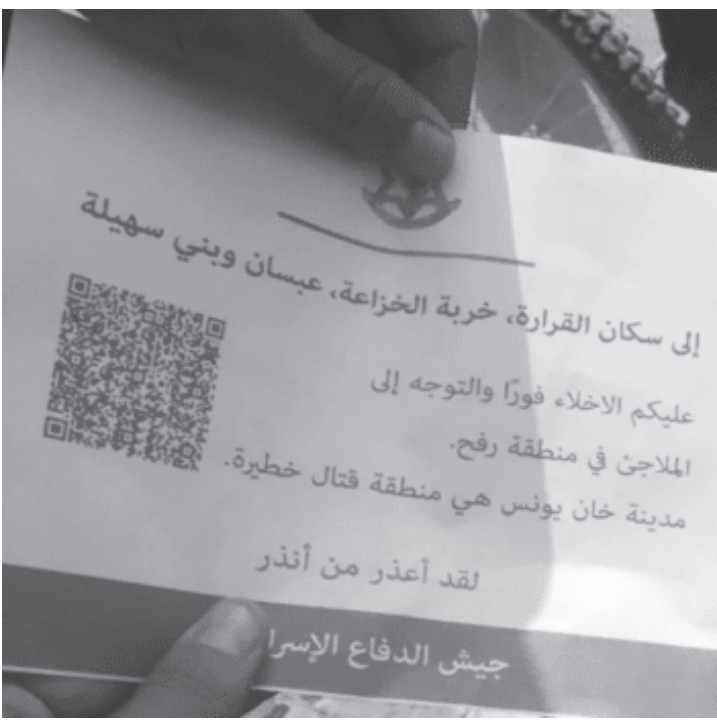 إلى سكان القرارة، خربة الخزاعة، عبسان وبني سهيلة
عليكم الاخلاء فورًا والتوجه إلى
الملاجئ في منطقة رفح.
مدينة خان يونس هي منطقة قتال خطيرة.
لقد أعذر من أنذر
جيش الدفاع